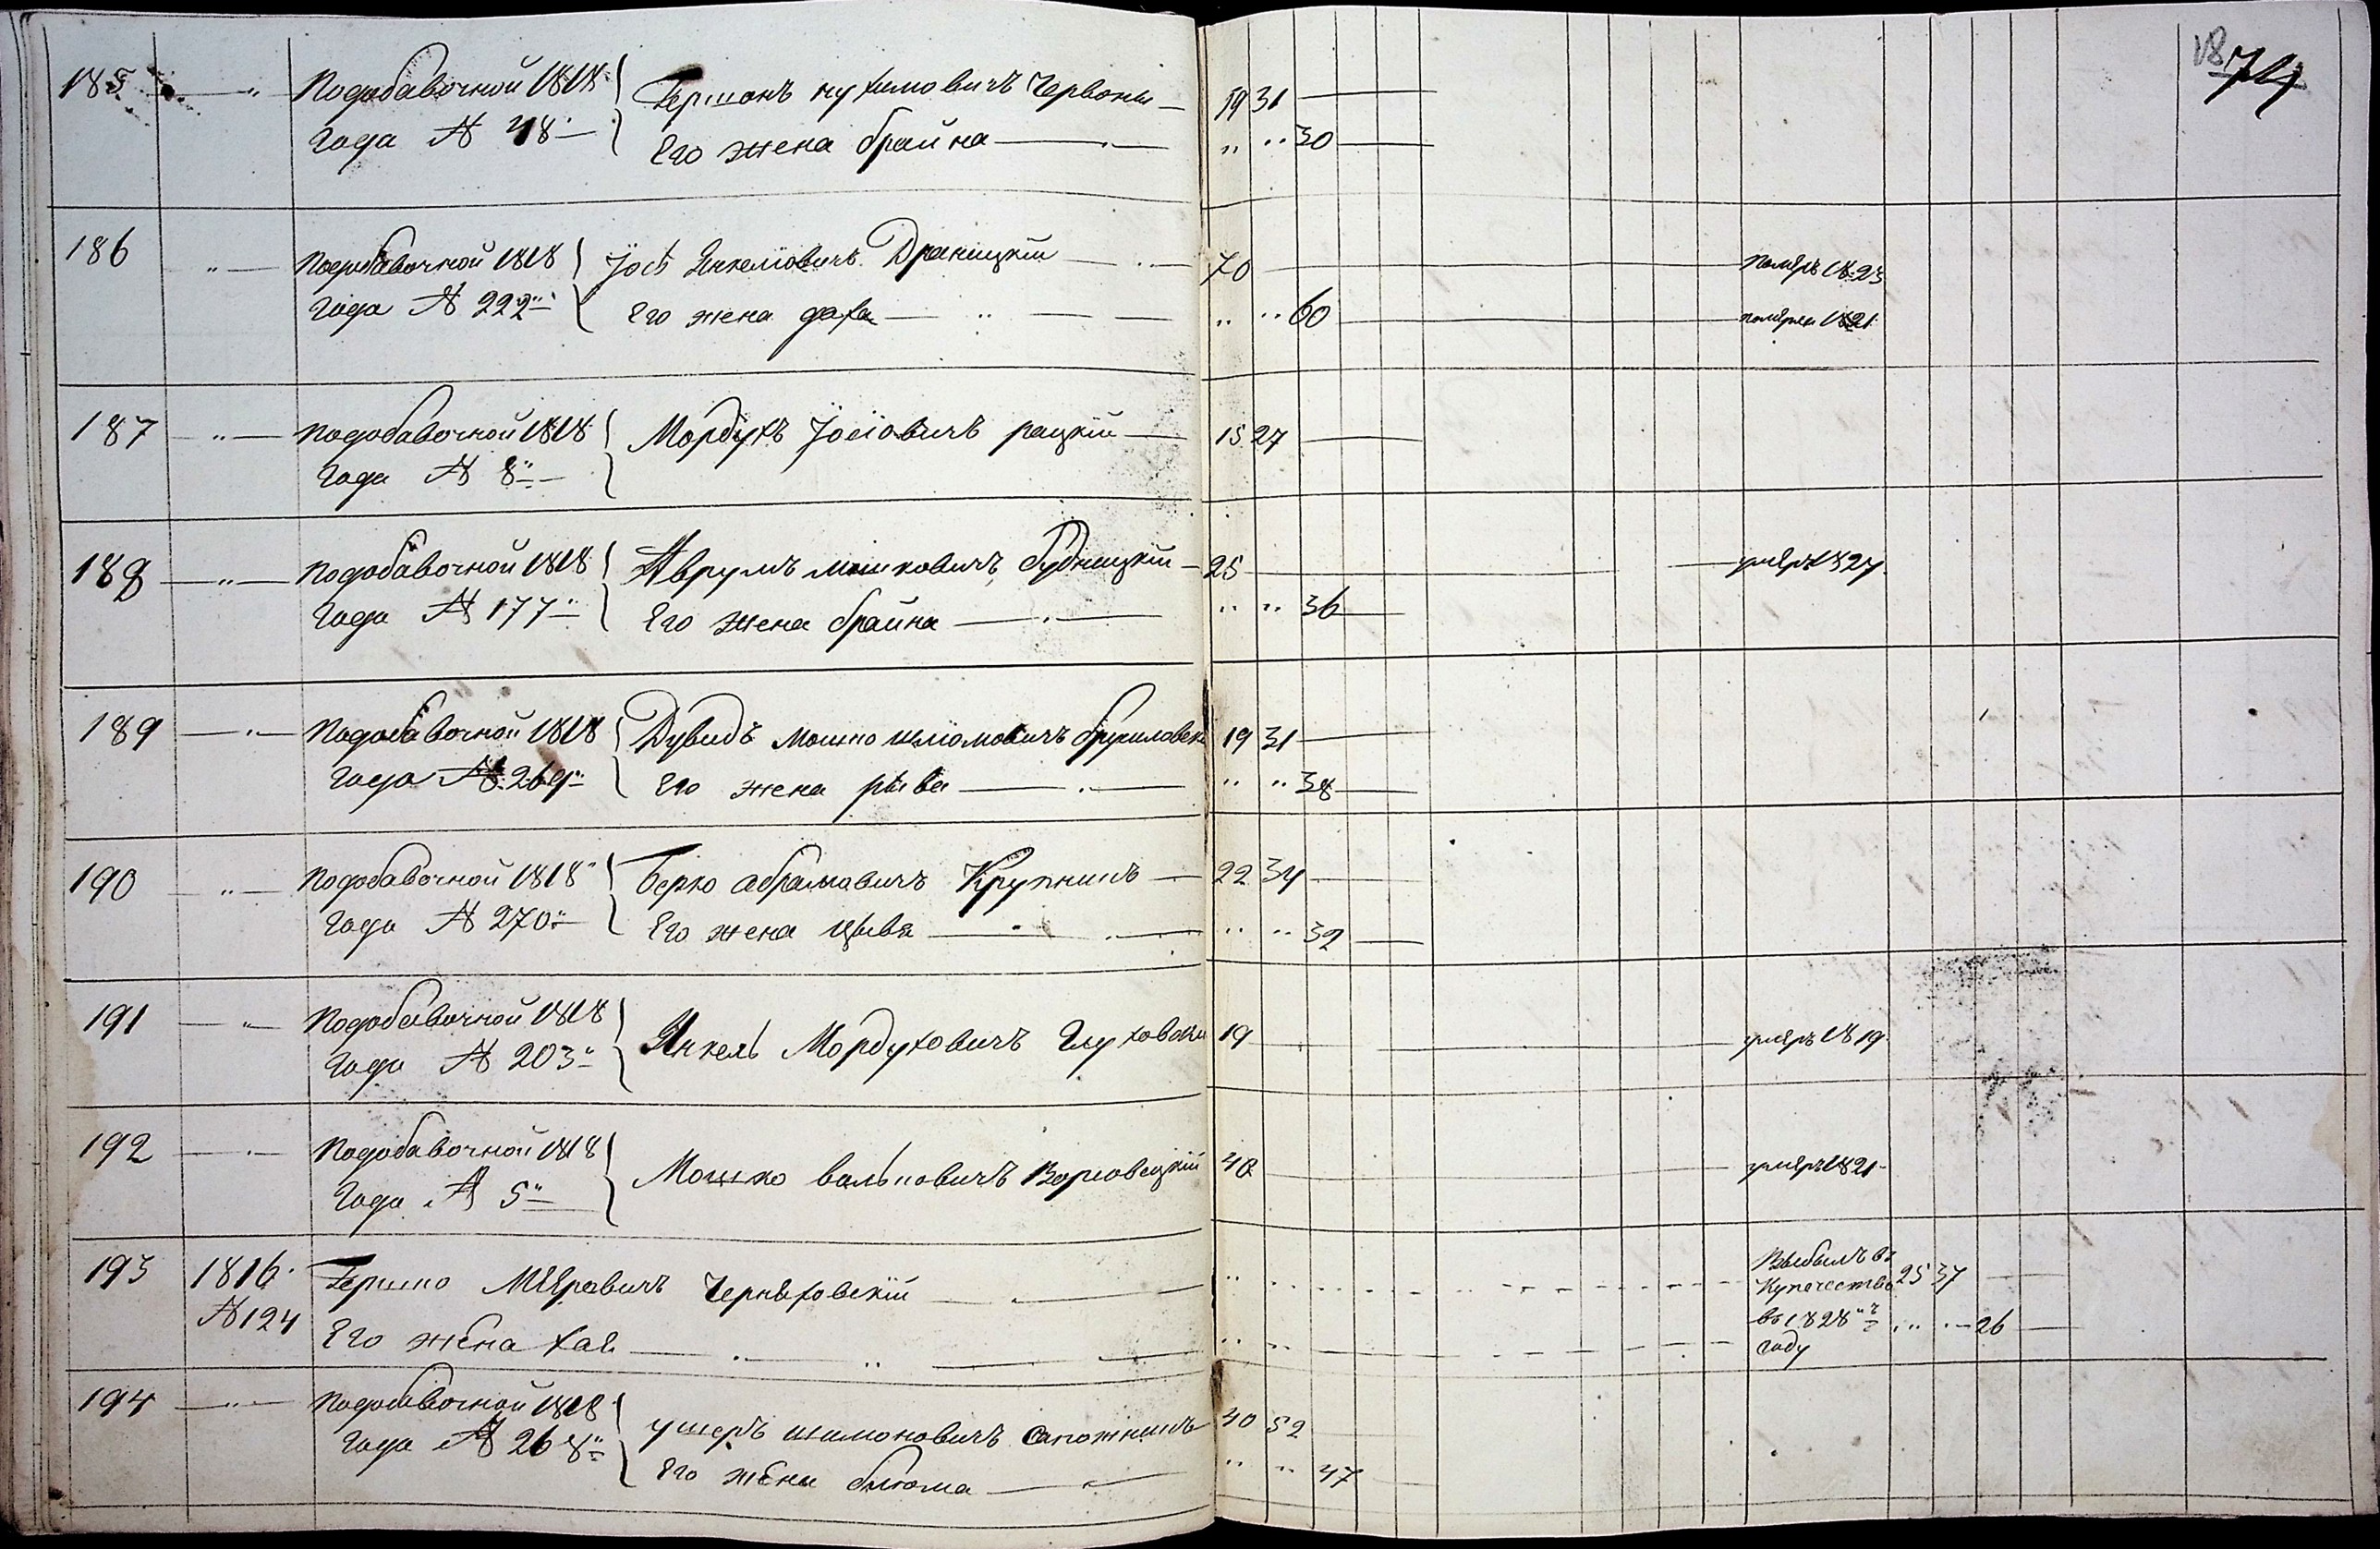 18 74
185 " Подобавочной 1818 Гершонъ нухимовичъ Червоны 19 31
года № 48 Его жена брайна " " 30
186 " Подобавочной 1818 Йось Янкелiовичъ Драницкiй 70 помѣръ 1823
года № 222 Его жена " " 60 померла 1821
187 " Подобавочной 1818 Мордухъ Йосiовичъ рацкiй 15 27
года № 8
188 " Подобавочной 1818 Аврумъ мошковичъ Будницкiй 25 умѣръ 1827
года № 177 Его жена брайна " " 36
189 " Подобавочной 1818 Дувидъ Мошко шлiомовичъ 19 31
года № 269 Его жена рыва " " 38
190 " Подобавочной 1818 Берко абрамовичъ Крупникъ 22 34
года № 270 Его жена Цывя " " 32
191 " Подобавочной 1818 Янкель Мордуховичъ Глуховски 19 умѣръ 1819
года № 203
192 " Подобавочной 1818 Мошко вольковичъ 40 умѣръ 1821
года № 5
193 1816 Гершко Мѣеровичъ Черняховскiй " выбылъ въ
купечество 25 37
№ 124 Его жена хая " " въ 1828 " " 26
году
194 " Подобавочной 1818 ушеръ шимоновичъ Сапожникъ 40 52
года № 268 Его жена блюма " " 47